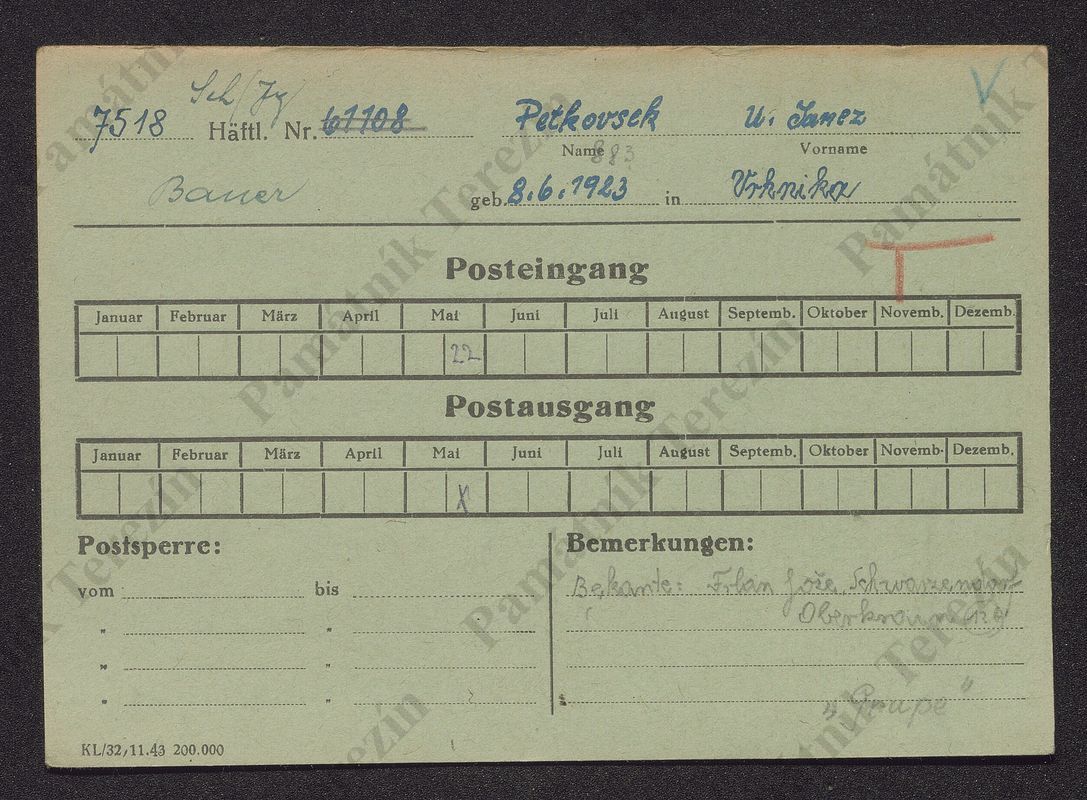 Sch/Jg
7518 Häftl. Nr. 61108 Petkovsek U. Janez V
Name 883 Vorname
Bauer geb. 8.6.1923 in Vrhnika
T
Posteingang
Januar Februar März April Mai Juni Juli August Septemb. Oktober Novemb. Dezemb.
22
Postausgang
Januar Februar März April Mai Juni Juli August Septemb. Oktober Novemb. Dezemb.
X
Postsperre: Bemerkungen:
vom bis Bekante: Frlan Jože, Schwarzendorf
" " Oberkrain
" "
" " "Grupe"
KL/32, 11.43 200.000
Památník Terezín